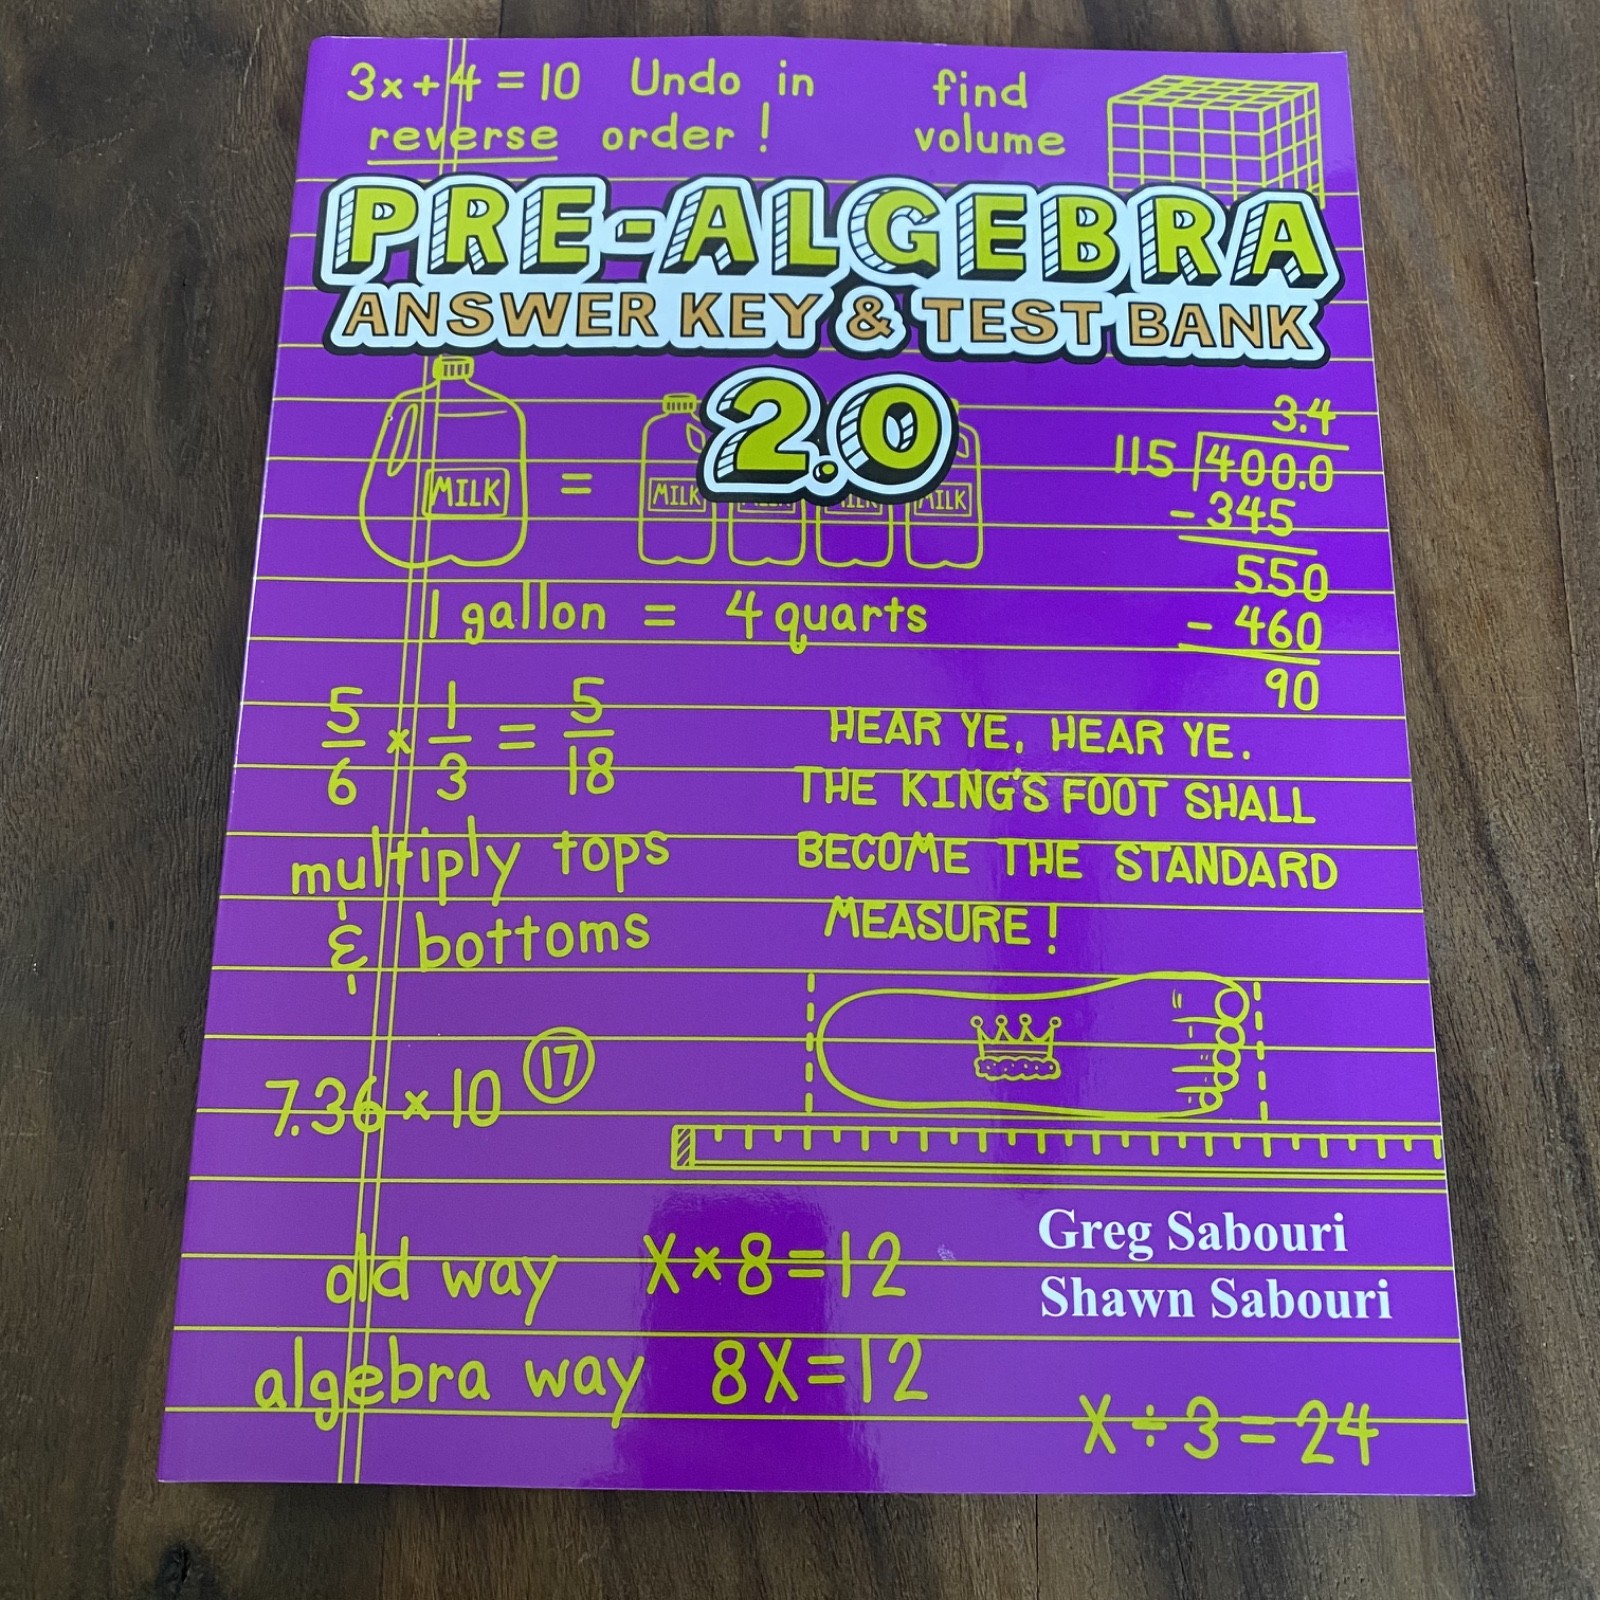 3x + 4 = 10 Undo in
reverse order !
find
volume
PRE-ALGEBRA
ANSWER KEY & TEST BANK
2.0
MILK = MILK MILK MILK MILK
1 gallon = 4 quarts
3.4
115 400.0
- 345
550
- 460
90
5/6 × 1/3 = 5/18
multiply tops
& bottoms
HEAR YE, HEAR YE.
THE KING'S FOOT SHALL
BECOME THE STANDARD
MEASURE !
7.36 × 10 17
Greg Sabouri
Shawn Sabouri
old way X × 8 = 12
algebra way 8X = 12
X ÷ 3 = 24